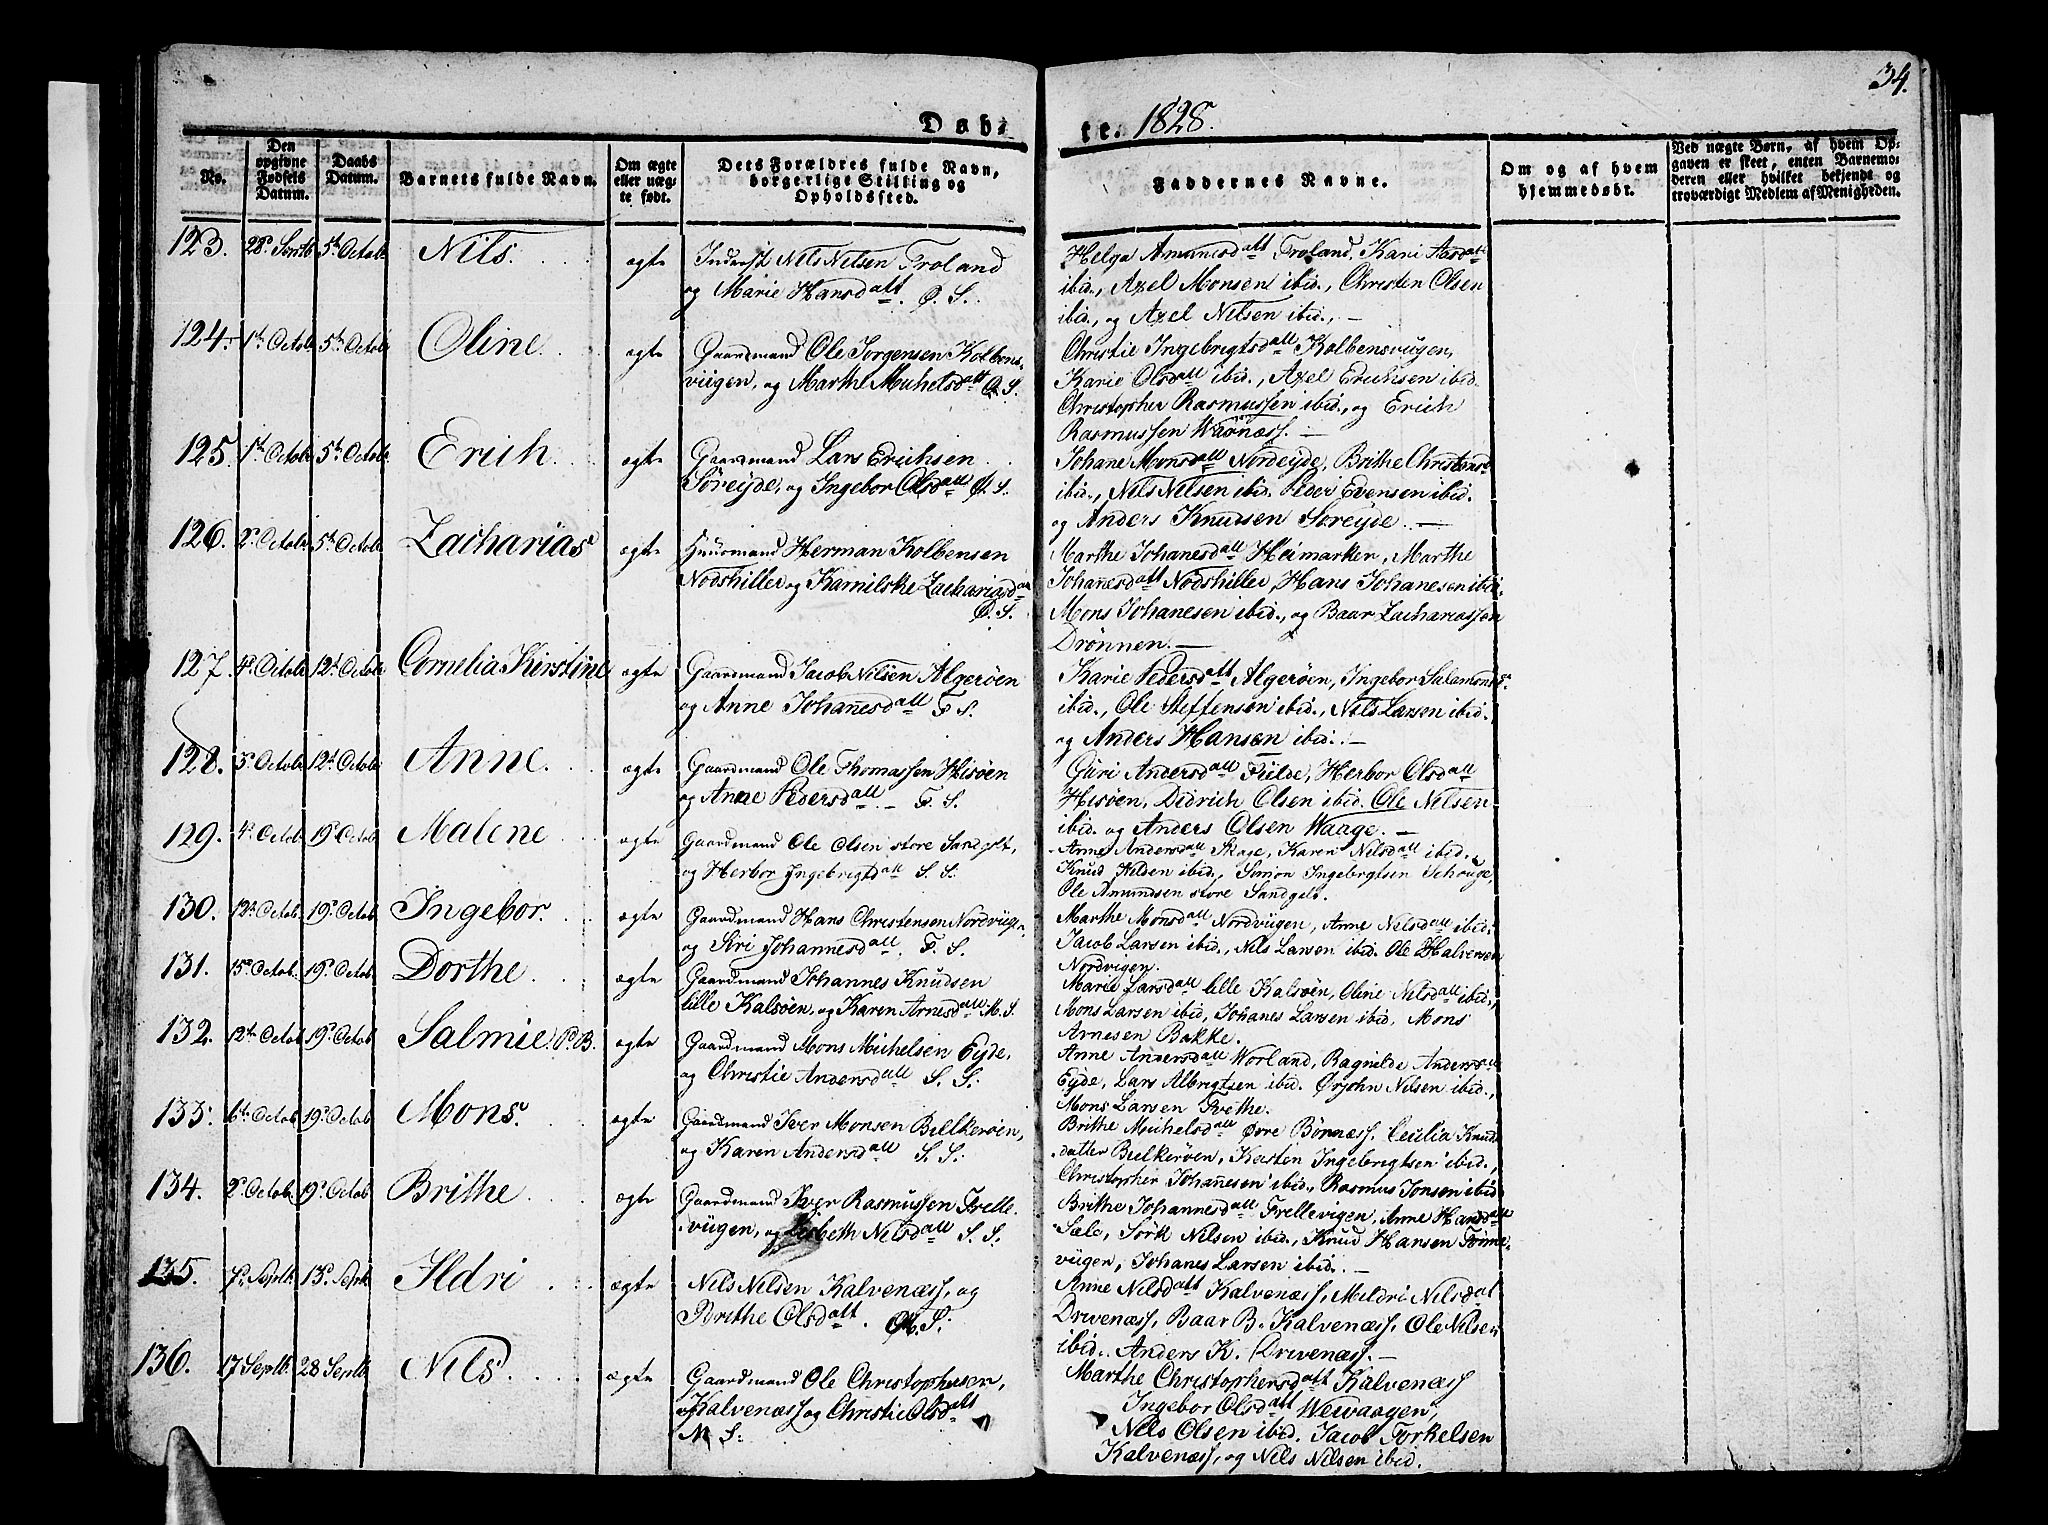 34.
Døb-
te. 1828.
No.
Den opgivne Fødsels Datum.
Daabs Datum.
Barnets fulde Navn.
Om ægte eller uægte født.
Dets Forældres fulde Navn, borgerlige Stilling og Opholdssted.
Faddernes Navne.
Om og af hvem hjemmedøbt.
Ved uægte Børn, af hvem Opgaven er skeet, enten Barnemoderen eller hvilket bekjendt og troværdigt Medlem af Menigheden.
123. 28de Septb 5te Octob Nils. ægte
Inderst Nils Nilsen Troland
og Marie Hansdatt. Ø. S.
Helga Amundsdatt Troland, Kari Aasdatt
ibid., Axel Monsen ibid., Christen Olsen
ibid., og Axel Nilsen ibid., —
124. 1te Octob 5te Octob Oline. ægte
Gaardmand Ole Jorgensen Kolbens-
viigen, og Marthe Michelsdatt Ø. S.
Christie Ingebrigtsdatt Kolbensviigen,
Karie Olsdatt ibid., Axel Erichsen ibid.
Christopher Rasmussen ibid., og Erich
Rasmussen Waønæss. —
125. 1te Octob 5te Octob Erich ægte
Gaardmand Lars Erichsen
Søreyde, og Ingebor Olsdatt Ø. S.
Johane Monsdatt Nordeyde, Brithe Christensd
ibid., Nils Nilsen ibid. Peder Evensen ibid.
og Anders Knudsen Soreyde. —
126. 2den Octob 5te Octob Zacharias ægte
Huusmand Herman Kolbensen
Nodshiller og Kamilske Zachariasdatt
Ø. S.
Marthe Johanesdatt Heimarken, Marthe
Johanesdatt Nodshiller, Hans Johanesen ibid.
Mons Johanesen ibid., og Baar Zachariassen
Drönnen. —
127. 4de Octob 12te Octob Cornelia Kirstine ægte
Gaardmand Jacob Nilsen Algerøen
og Anne Johanesdatt F. S.
Karie Pedersdatt Algerøen, Ingebor Salamonsd
ibid., Ole Steffensen ibid., Nils Larsen ibid.
og Anders Hansen ibid. —
128. 5te Octob 12te Octob Anne. ægte
Gaardmand Ole Thomassen Hisøen
og Anne Pedersdatt. — F. S.
Guri Andersdatt Fiilde, Herbor Olsdatt
Hisøen, Didrich Olsen ibid. Ole Nilsen
ibid. og Anders Olsen Waage. —
129. 4de Octob. 19de Octob Malene ægte
Gaardmand Ole Olsen store Sandgolt,
og Herbor Ingebrigtdatt S. S.
Anne Andersdatt Skage, Karen Nilsdatt ibid.
Knud Helden ibid., Simon Ingebrigtsen Schouge,
Ole Amundsen store Sandgolt.
130. 12te Octob. 19de Octob Ingebor. ægte
Gaardmand Hans Christensen Nordviigen
og Siri Johannesdatt. F. S.
Marthe Monsdatt Nordviigen, Anne Nilsdatt ibid.
Jacob Larsen ibid., Nils Larsen ibid. Ole Halversen
Nordvigen.
131. 15de Octob. 19de Octob Dorthe. ægte
Gaardmand Johannes Knudsen
lille Kalsøen, og Karen Arnesdatt M. S.
Marie Larsdatt lille Kalsøen, Oline Nilsdatt ibid.,
Mons Larsen ibid, Johanes Larsen ibid. Mons
Arnesen Bakke.
132. 12te Octob 19de Octob Salmie. P. B. ægte
Gaardmand Mons Michelsen Eyde,
og Christie Andersdatt S. S.
Anne Andersdatt Worland, Ragnilde Andersdatt
Eyde, Lars Albrigtsen ibid. Ørjohn Nilsen ibid.,
Mons Larsen Tvethe.
133. 6te Octob 19de Octob Mons. ægte
Gaardmand Iver Monsen Bielkerøen,
og Karen Andersdatt S. S.
Brithe Michelsdatt Øvre Børnæss, Cecilia Knuds-
datter Bielkerøen, Kersten Ingebrigtsen ibid.,
Christopher Johanesen ibid., Rasmus Jonsen ibid
134. 2den Octob. 19de Octob Brithe ægte
Gaardmand Iver Rasmussen Trelle-
viigen, og Lisbeth Nilsdatt S. S.
Brithe Johannesdatt Trellevigen, Anne Hansdatt
Sæle, Sörk Nilsen ibid., Knud Hansen
viigen, Johanes Larsen ibid. —
135. 7de Septb 13de Septb Ildri ægte
Nils Nilsen Kalvenæss, og
Brithe Olsdatt. Ø. S.
Anne Nilsdatt Kalvenæss, Mildri Nilsdat
Drivenæss, Baar B. Kalvenæss, Ole Nilsen
ibid. Anders K. Drivenæss. —
136. 17 Septb. 28 Septb Nils. ægte
Gaardmand Ole Christophersen,
Kalvenæss og Christie Olsdatt
M S.
Marthe Christophersdatt Kalvenæss
Ingebor Olsdatt Wewaagen,
Nils Olsen ibid. Jacob Torkelsen
Kalvenæss, og Nils Nilsen ibid.